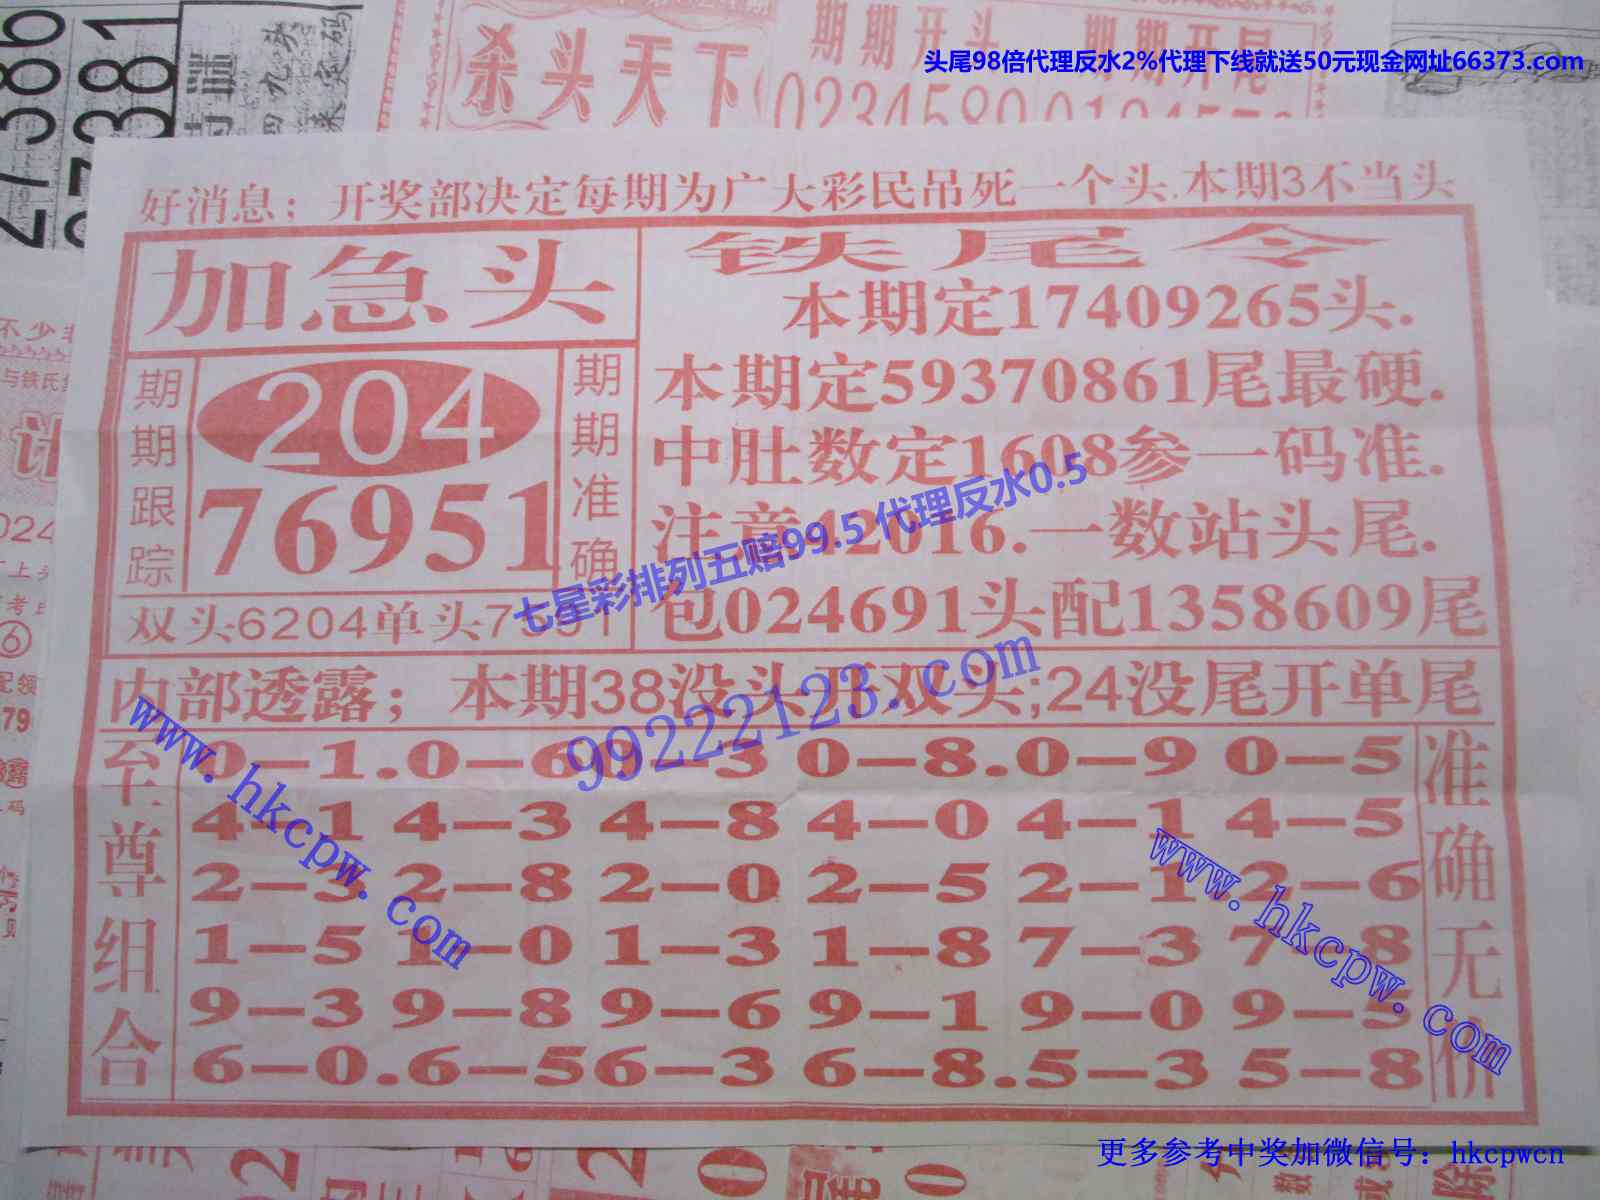 头尾98倍代理反水2%代理下线就送50元现金网址66373.com
杀头天下
期期开头
期期开尾
好消息；开奖部决定每期为广大彩民吊死一个头.本期3不当头
加急头
期期跟踪
204
76951
期期准确
双头6204单头7
铁尾令
本期定17409265头.
本期定59370861尾最硬.
中肚数定1608参一码准.
注意42016.一数站头尾.
包024691头配1358609尾
七星彩排列五赔99.5 代理反水0.5
99222123.com
内部透露；本期38没头开双头;24没尾开单尾
至尊组合
0-1.0-6 0-3 0-8.0-9 0-5
4-1 4-3 4-8 4-0 4-1 4-5
2-3 2-8 2-0 2-5 2-1 2-6
1-5 1-0 1-3 1-8 7-3 7-8
9-3 9-8 9-6 9-1 9-0 9-5
6-0.6-5 6-3 6-8.5-3 5-8
准确无价
www.hkcpw.com
www.hkcpw.com
更多参考中奖加微信号：hkcpwcn